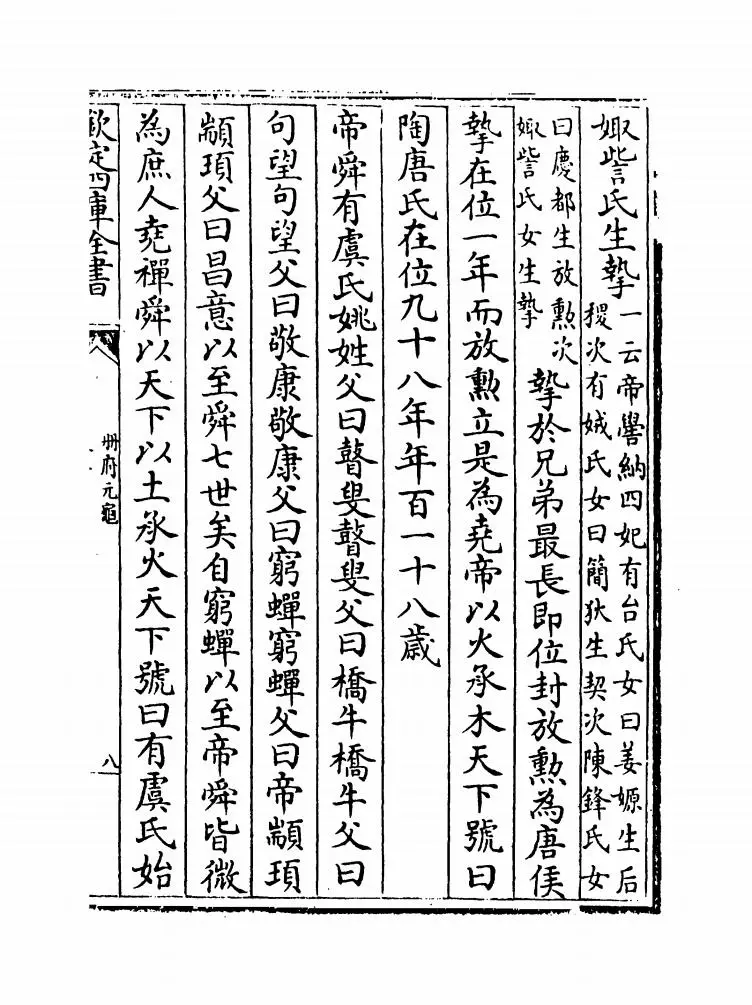 娵訾氏生摯一云帝嚳納四妃有台氏女曰姜嫄生后
稷次有娀氏女曰簡狄生契次陳鋒氏女
曰慶都生放勲次
娵訾氏女生摯
摯於兄弟最長即位封放勲為唐侯
摯在位一年而放勲立是為堯帝以火承木天下號曰
陶唐氏在位九十八年年百一十八歲
帝舜有虞氏姚姓父曰瞽叟瞽叟父曰橋牛橋牛父曰
句望句望父曰敬康敬康父曰窮蟬窮蟬父曰帝顓頊
顓頊父曰昌意以至舜七世矣自窮蟬以至帝舜皆微
為庶人堯禪舜以天下以土承火天下號曰有虞氏始
欽定四庫全書
冊府元龜
八